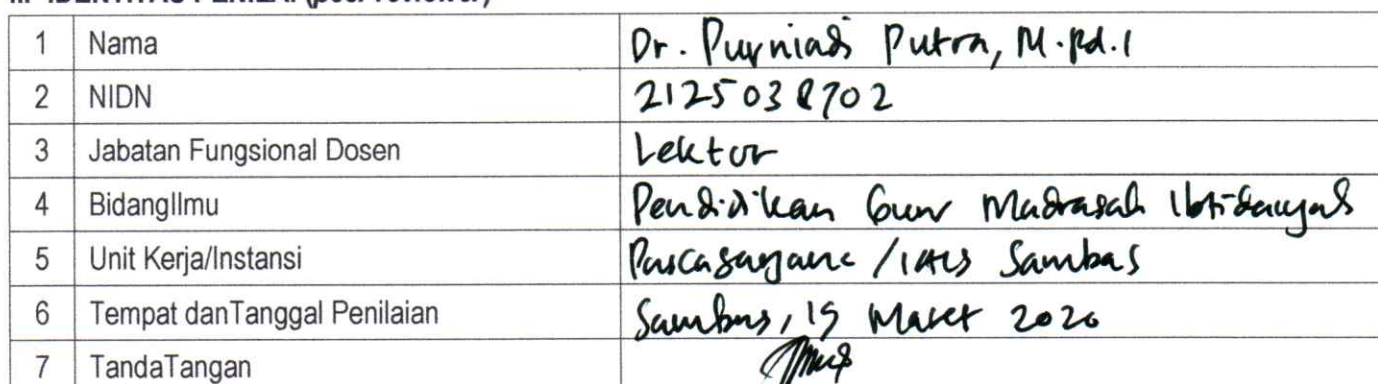 1 Nama Dr. Purniadi Putra, M.Pd.I
2 NIDN 2125038702
3 Jabatan Fungsional Dosen Lektor
4 BidangIlmu Pendidikan Guru Madrasah Ibtidaiyah
5 Unit Kerja/Instansi Pascasarjana /IAIS Sambas
6 Tempat danTanggal Penilaian Sambas, Maret 2020
7 TandaTangan